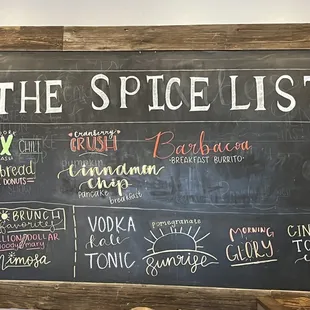 THE SPICE LIST
CHILI
bread
DONUTS
Cranberry
CRUSH
Pumpkin
Cinnamon
chip
pancake
breakfast
Barbacoa
-BREAKFAST BURRITO-
BRUNCH
favorites
MILLION DOLLAR
bloody mary
mimosa
VODKA
kale
TONIC
pomegranate
sunrise
MORNING
GLORY
CIN
TO